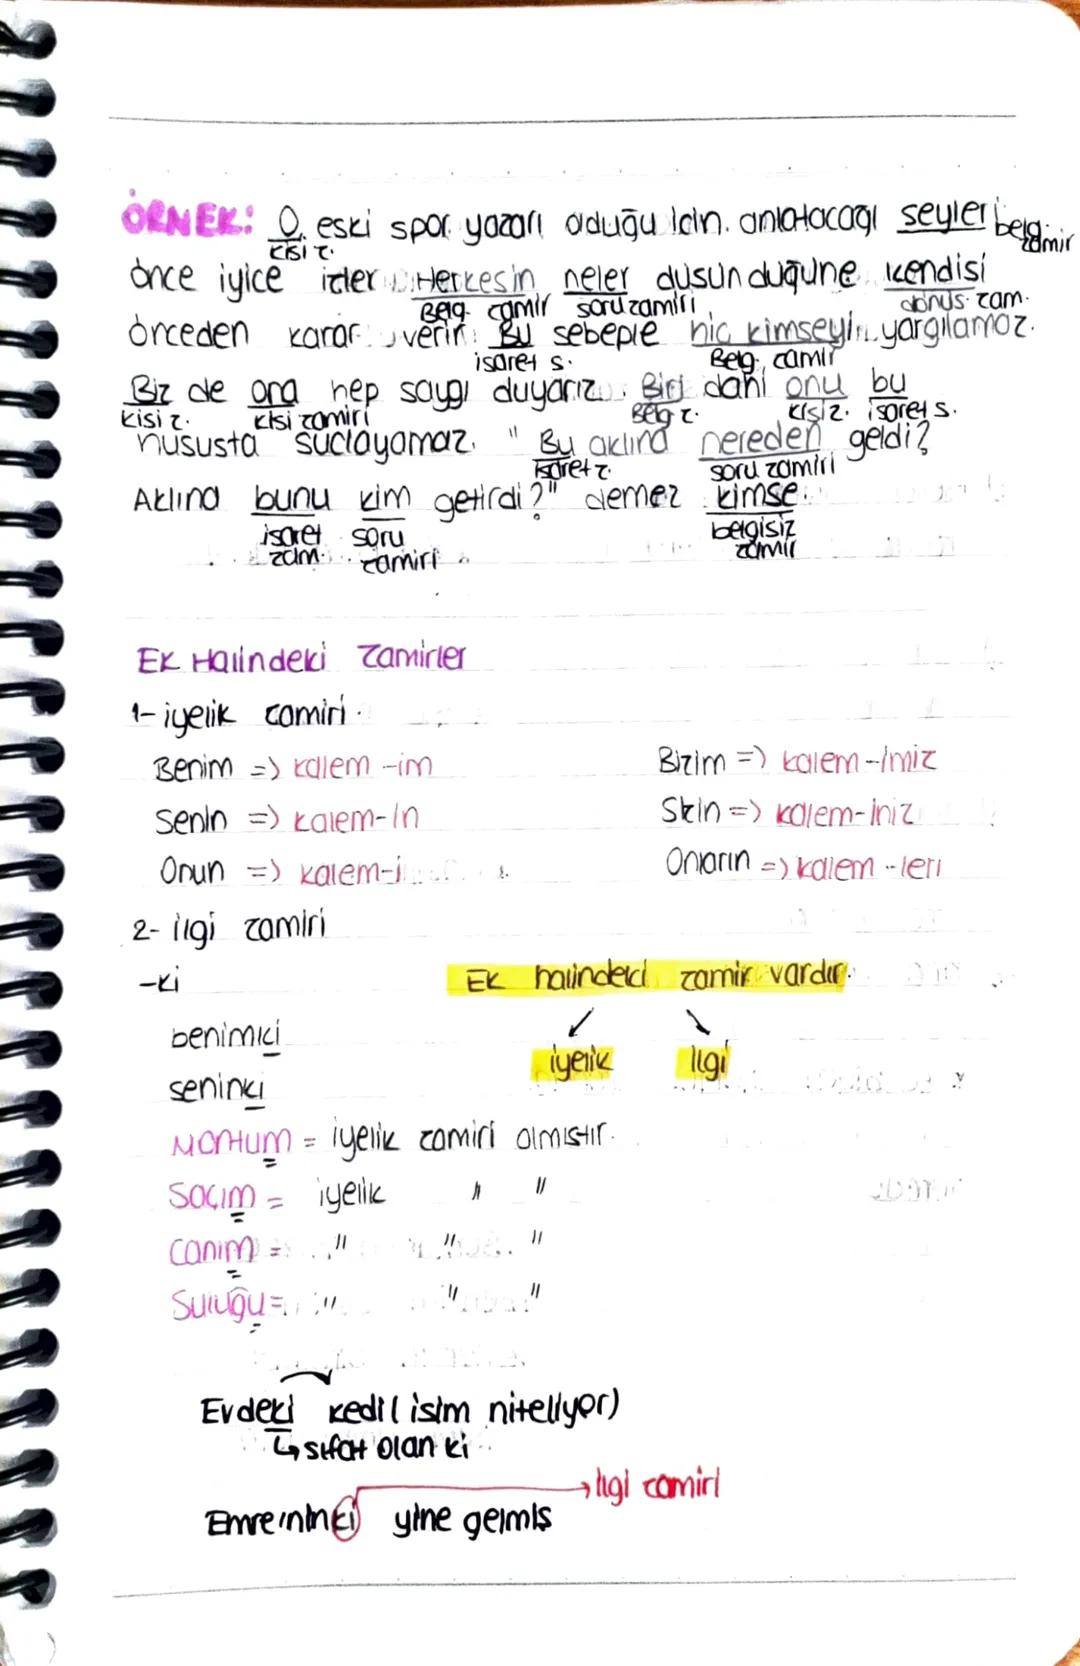 ÖRNEK: O, eski spor yazarı olduğu için. anlatacağı şeyleri
kişi z. belg. zamir
önce iyice izler. Herkesin neler düşündüğüne kendisi
Belg. zamir soru zamiri dönüş. zam.
önceden karar verir. Bu sebeple hiç kimseyi yargılamaz.
işaret s. Belg. zamir
Biz de ona hep saygı duyarız. Biri dahi onu bu
kişi z. kişi zamiri Belg z. kişi z. işaret s.
hususta suçlayamaz. "Bu aklına nereden geldi?
işaret z. soru zamiri
Aklına bunu kim getirdi?" demez kimse.
işaret zam. soru zamiri belgisiz zamir
Ek Halindeki Zamirler
1- iyelik zamiri.
Benim => kalem -im Bizim => kalem -imiz
Senin => kalem-in Sizin => kalem-iniz
Onun => kalem-i Onların => kalem -leri
2- ilgi zamiri
-ki Ek halindeki zamir vardır.
benimki iyelik ilgi
seninki
Montum = iyelik zamiri olmıştır.
Saçım = iyelik " "
Canım = " " "
Suluğu = " " "
Evdeki kedi (isim niteliyor)
↳ sıfat olan ki
→ ilgi zamiri
Emre'ninki yine gelmiş